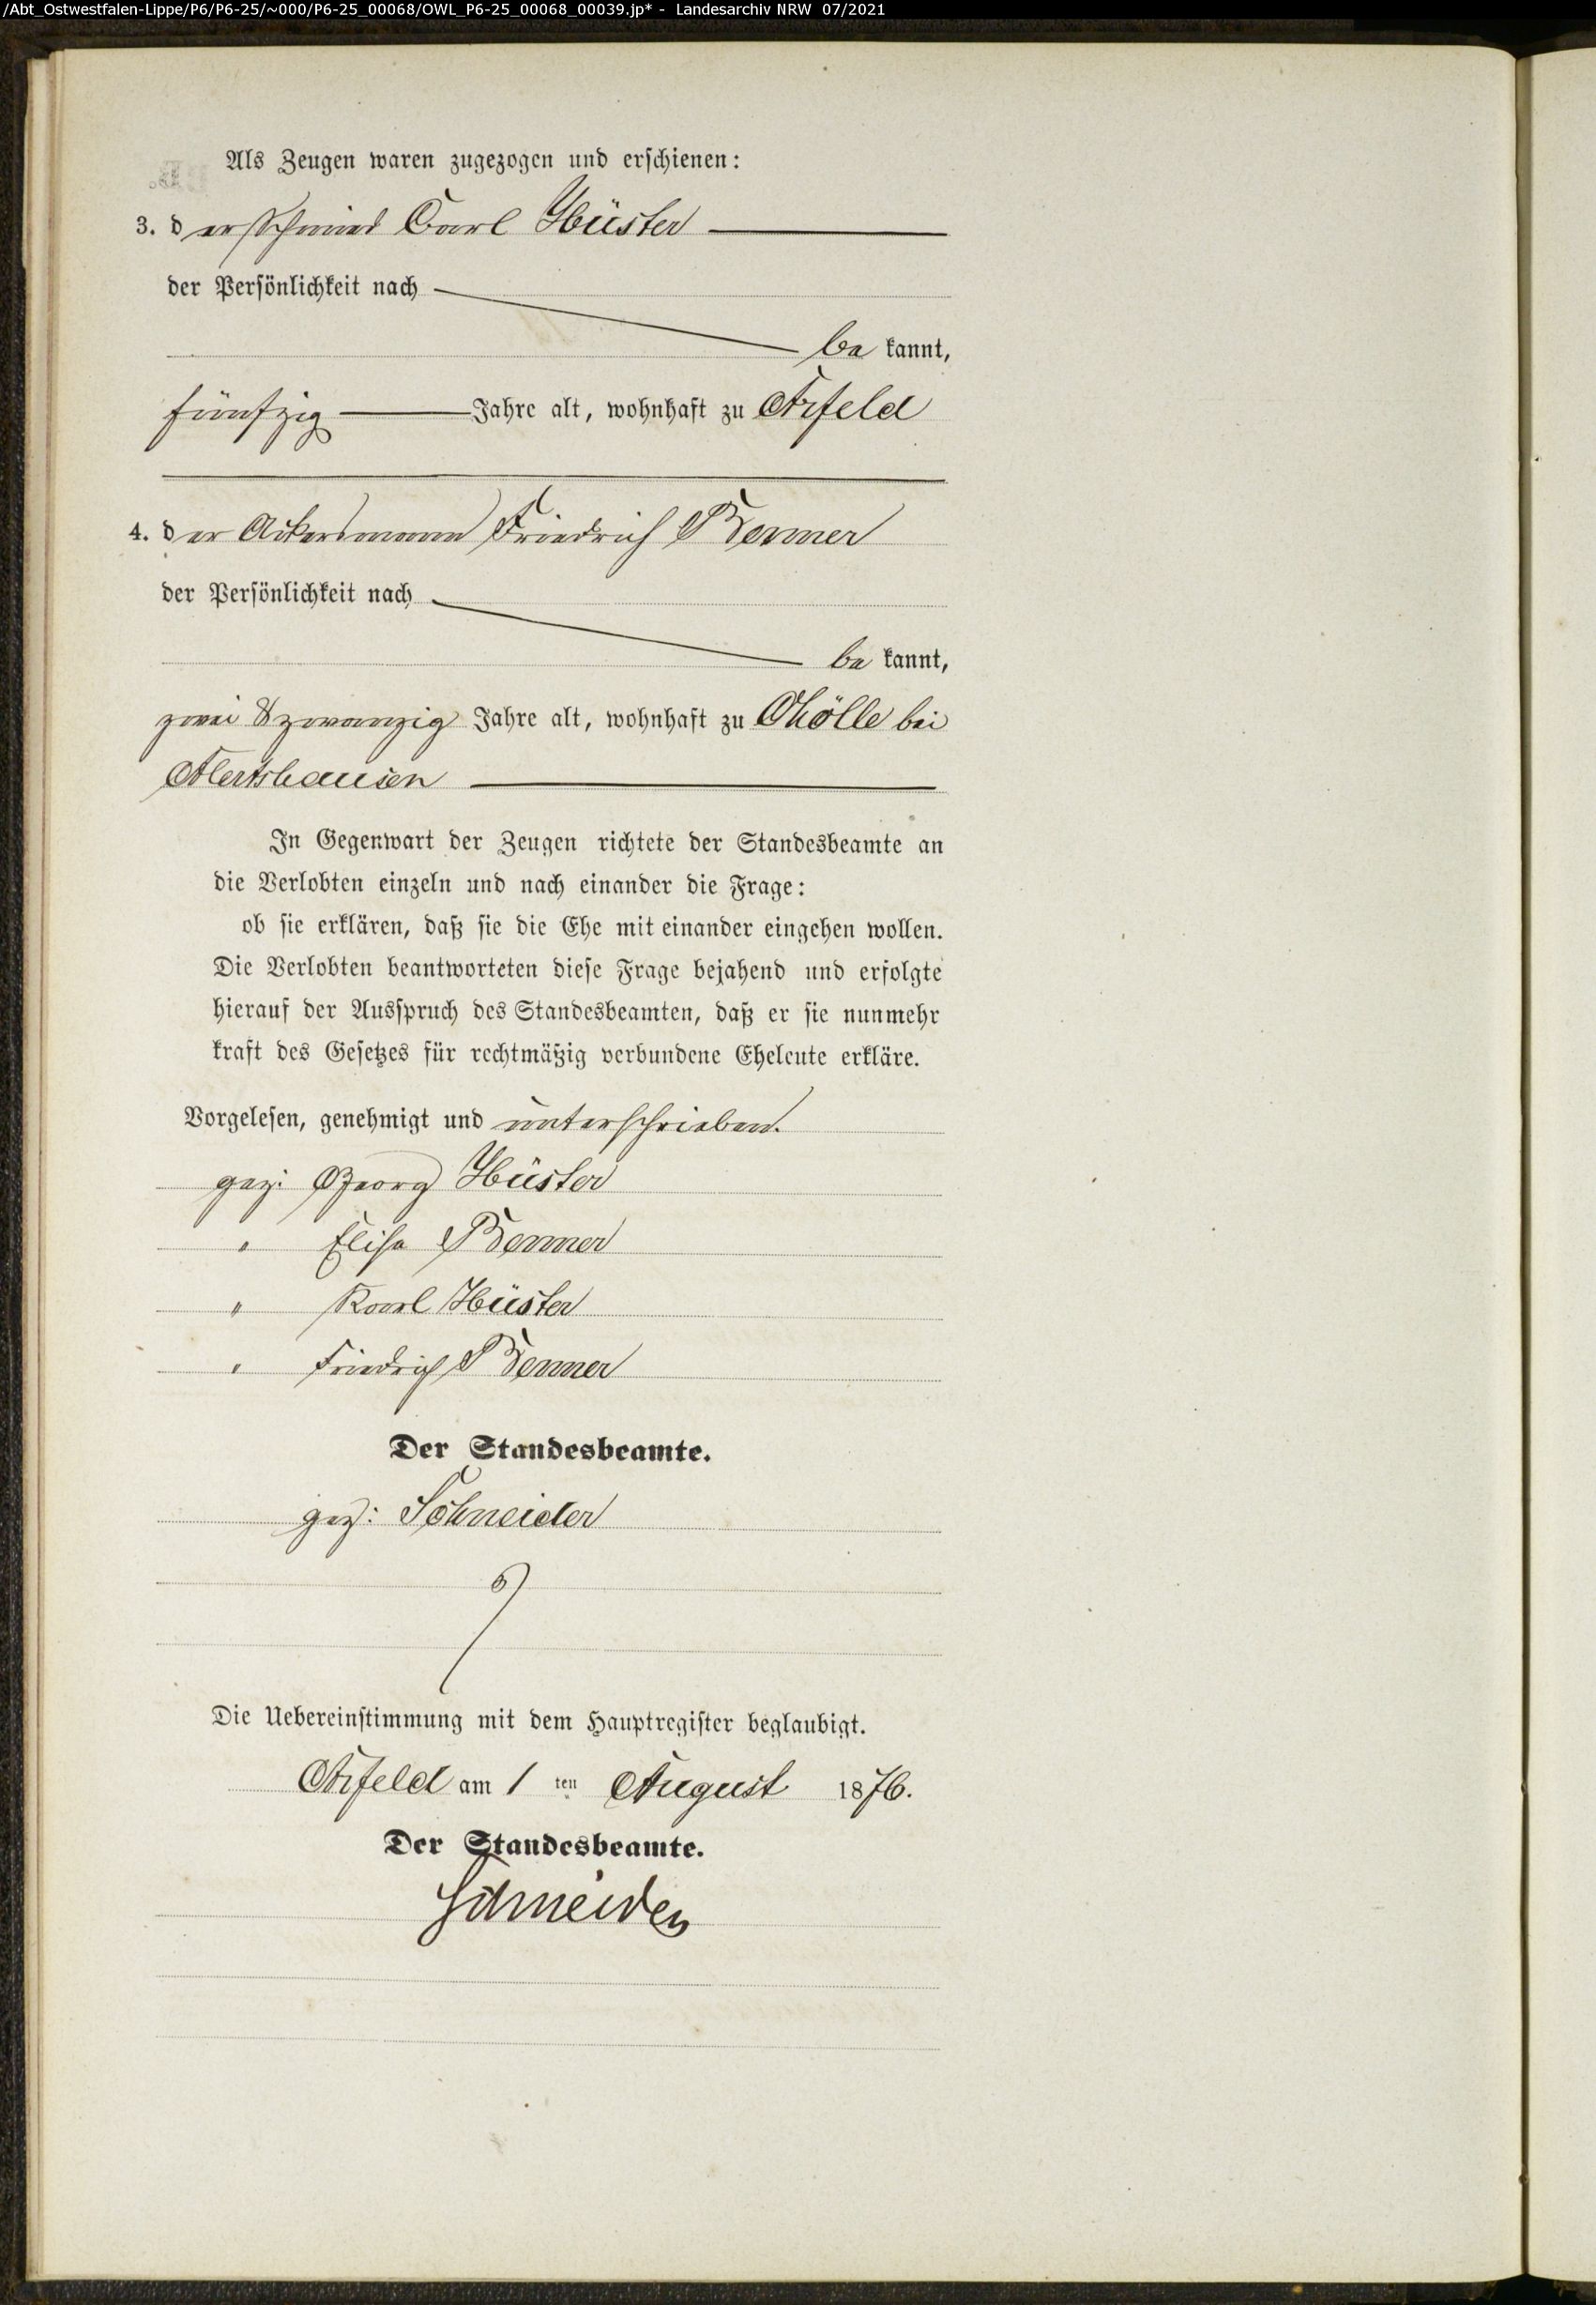 /Abt_Ostwestfalen-Lippe/P6/P6-25/~000/P6-25_00068/OWL_P6-25_00068_00039.jp* - Landesarchiv NRW 07/2021
Als Zeugen waren zugezogen und erschienen:
3. der Schmied Carl Hüster
der Persönlichkeit nach
be kannt,
fünfzig Jahre alt, wohnhaft zu Arfeld
4. der Ackersmann Friedrich Benner
der Persönlichkeit nach
be kannt,
zwei & zwanzig Jahre alt, wohnhaft zu bei
Alertshausen
In Gegenwart der Zeugen richtete der Standesbeamte an
die Verlobten einzeln und nach einander die Frage:
ob sie erklären, daß sie die Ehe mit einander eingehen wollen.
Die Verlobten beantworteten diese Frage bejahend und erfolgte
hierauf der Ausspruch des Standesbeamten, daß er sie nunmehr
kraft des Gesetzes für rechtmäßig verbundene Eheleute erkläre.
Vorgelesen, genehmigt und unterschrieben.
gez: Georg Hüster
" Elise Benner
" Karl Hüster
" Friedrich Benner
Der Standesbeamte.
gez: Schneider
Die Uebereinstimmung mit dem Hauptregister beglaubigt.
Arfeld am 1 ten August 1876.
Der Standesbeamte.
Schneider